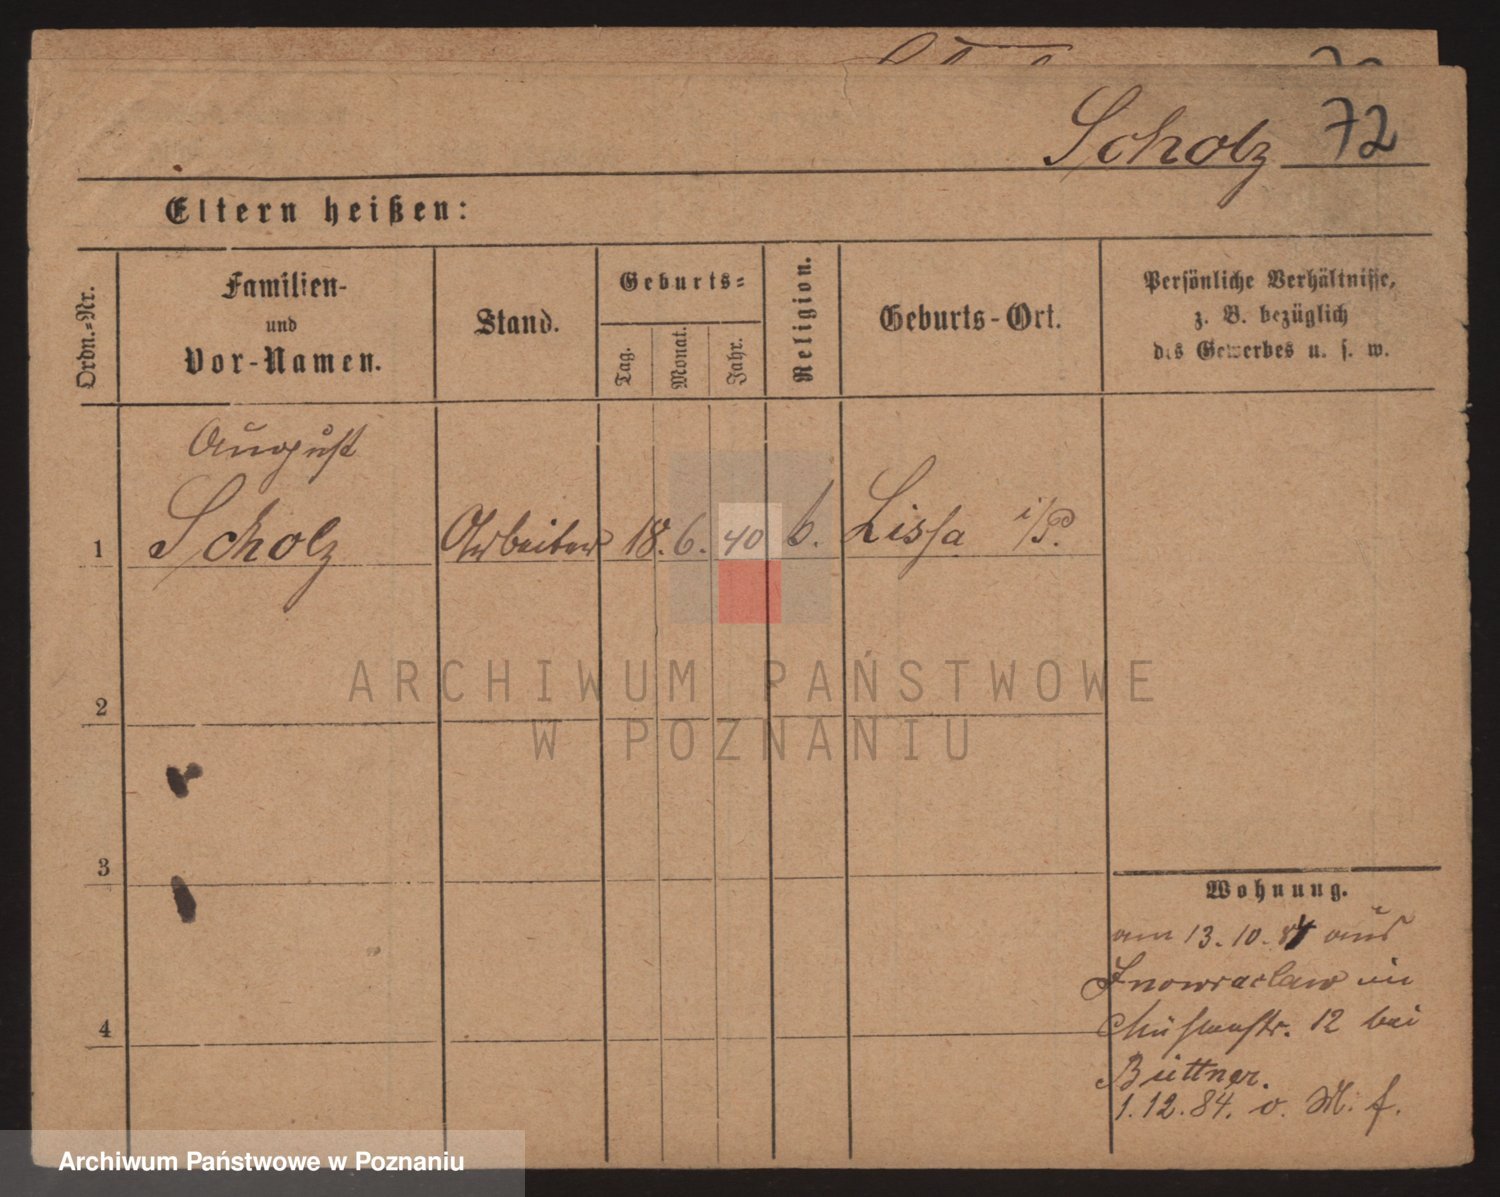 Scholz 72
Eltern heißen:
Ordn.-Nr.
Familien-
und
Vor-Namen.
Stand.
Geburts-
Tag.
Monat.
Jahr.
Religion.
Geburts-Ort.
Persönliche Verhältnisse,
z. B. bezüglich
des Gewerbes u. s. w.
August
1 Scholz Arbeiter 18. 6. 40 k. Lissa i/P.
2
3
4
Wohnung.
am 13. 10. 84 aus
Inowraclaw in
Mühlenstr. 12 bei
Büttner.
1. 12. 84. o. M. f.
ARCHIWUM PAŃSTWOWE
W POZNANIU
Archiwum Państwowe w Poznaniu